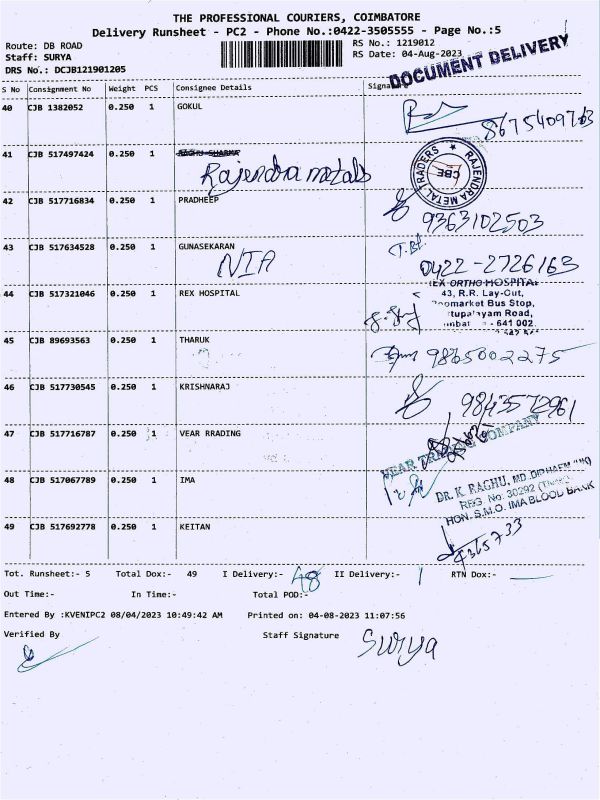 THE PROFESSIONAL COURIERS, COIMBATORE
Delivery Runsheet - PC2 - Phone No.:0422-3505555 - Page No.:5
Route: DB ROAD RS No.: 1219012
Staff: SURYA RS Date: 04-Aug-2023
DRS No.: DCJB121901205
DOCUMENT DELIVERY
S No Consignment No Weight PCS Consignee Details
40 CJB 1382052 0.250 1 GOKUL
8675409763
41 CJB 517497424 0.250 1 RAGHU SHARMA
Rajendra metals
RAJENDRA METAL TRADERS CBE
42 CJB 517716834 0.250 1 PRADHEEP
9363102503
43 CJB 517634528 0.250 1 GUNASEKARAN
NIA 0422-2726163
44 CJB 517321046 0.250 1 REX HOSPITAL
REX ORTHO HOSPITAL
43, R.R. Lay-Out,
Bus Stop,
Road,
- 641 002.
45 CJB 89693563 0.250 1 THARUK
9865002275
46 CJB 517730545 0.250 1 KRISHNARAJ
9843572961
47 CJB 517716787 0.250 1 VEAR RRADING
VEAR TRADING COMPANY
48 CJB 517067789 0.250 1 IMA
DR. K. RAGHU, MD.
REG No: 30292
HON. S.M.O. IMA BLOOD BANK
49 CJB 517692778 0.250 1 KEITAN
Tot. Runsheet:- 5 Total Dox:- 49 I Delivery:- 48 II Delivery:- 1 RTN Dox:-
Out Time:- In Time:- Total POD:-
Entered By :KVENIPC2 08/04/2023 10:49:42 AM Printed on: 04-08-2023 11:07:56
Verified By Staff Signature Surya